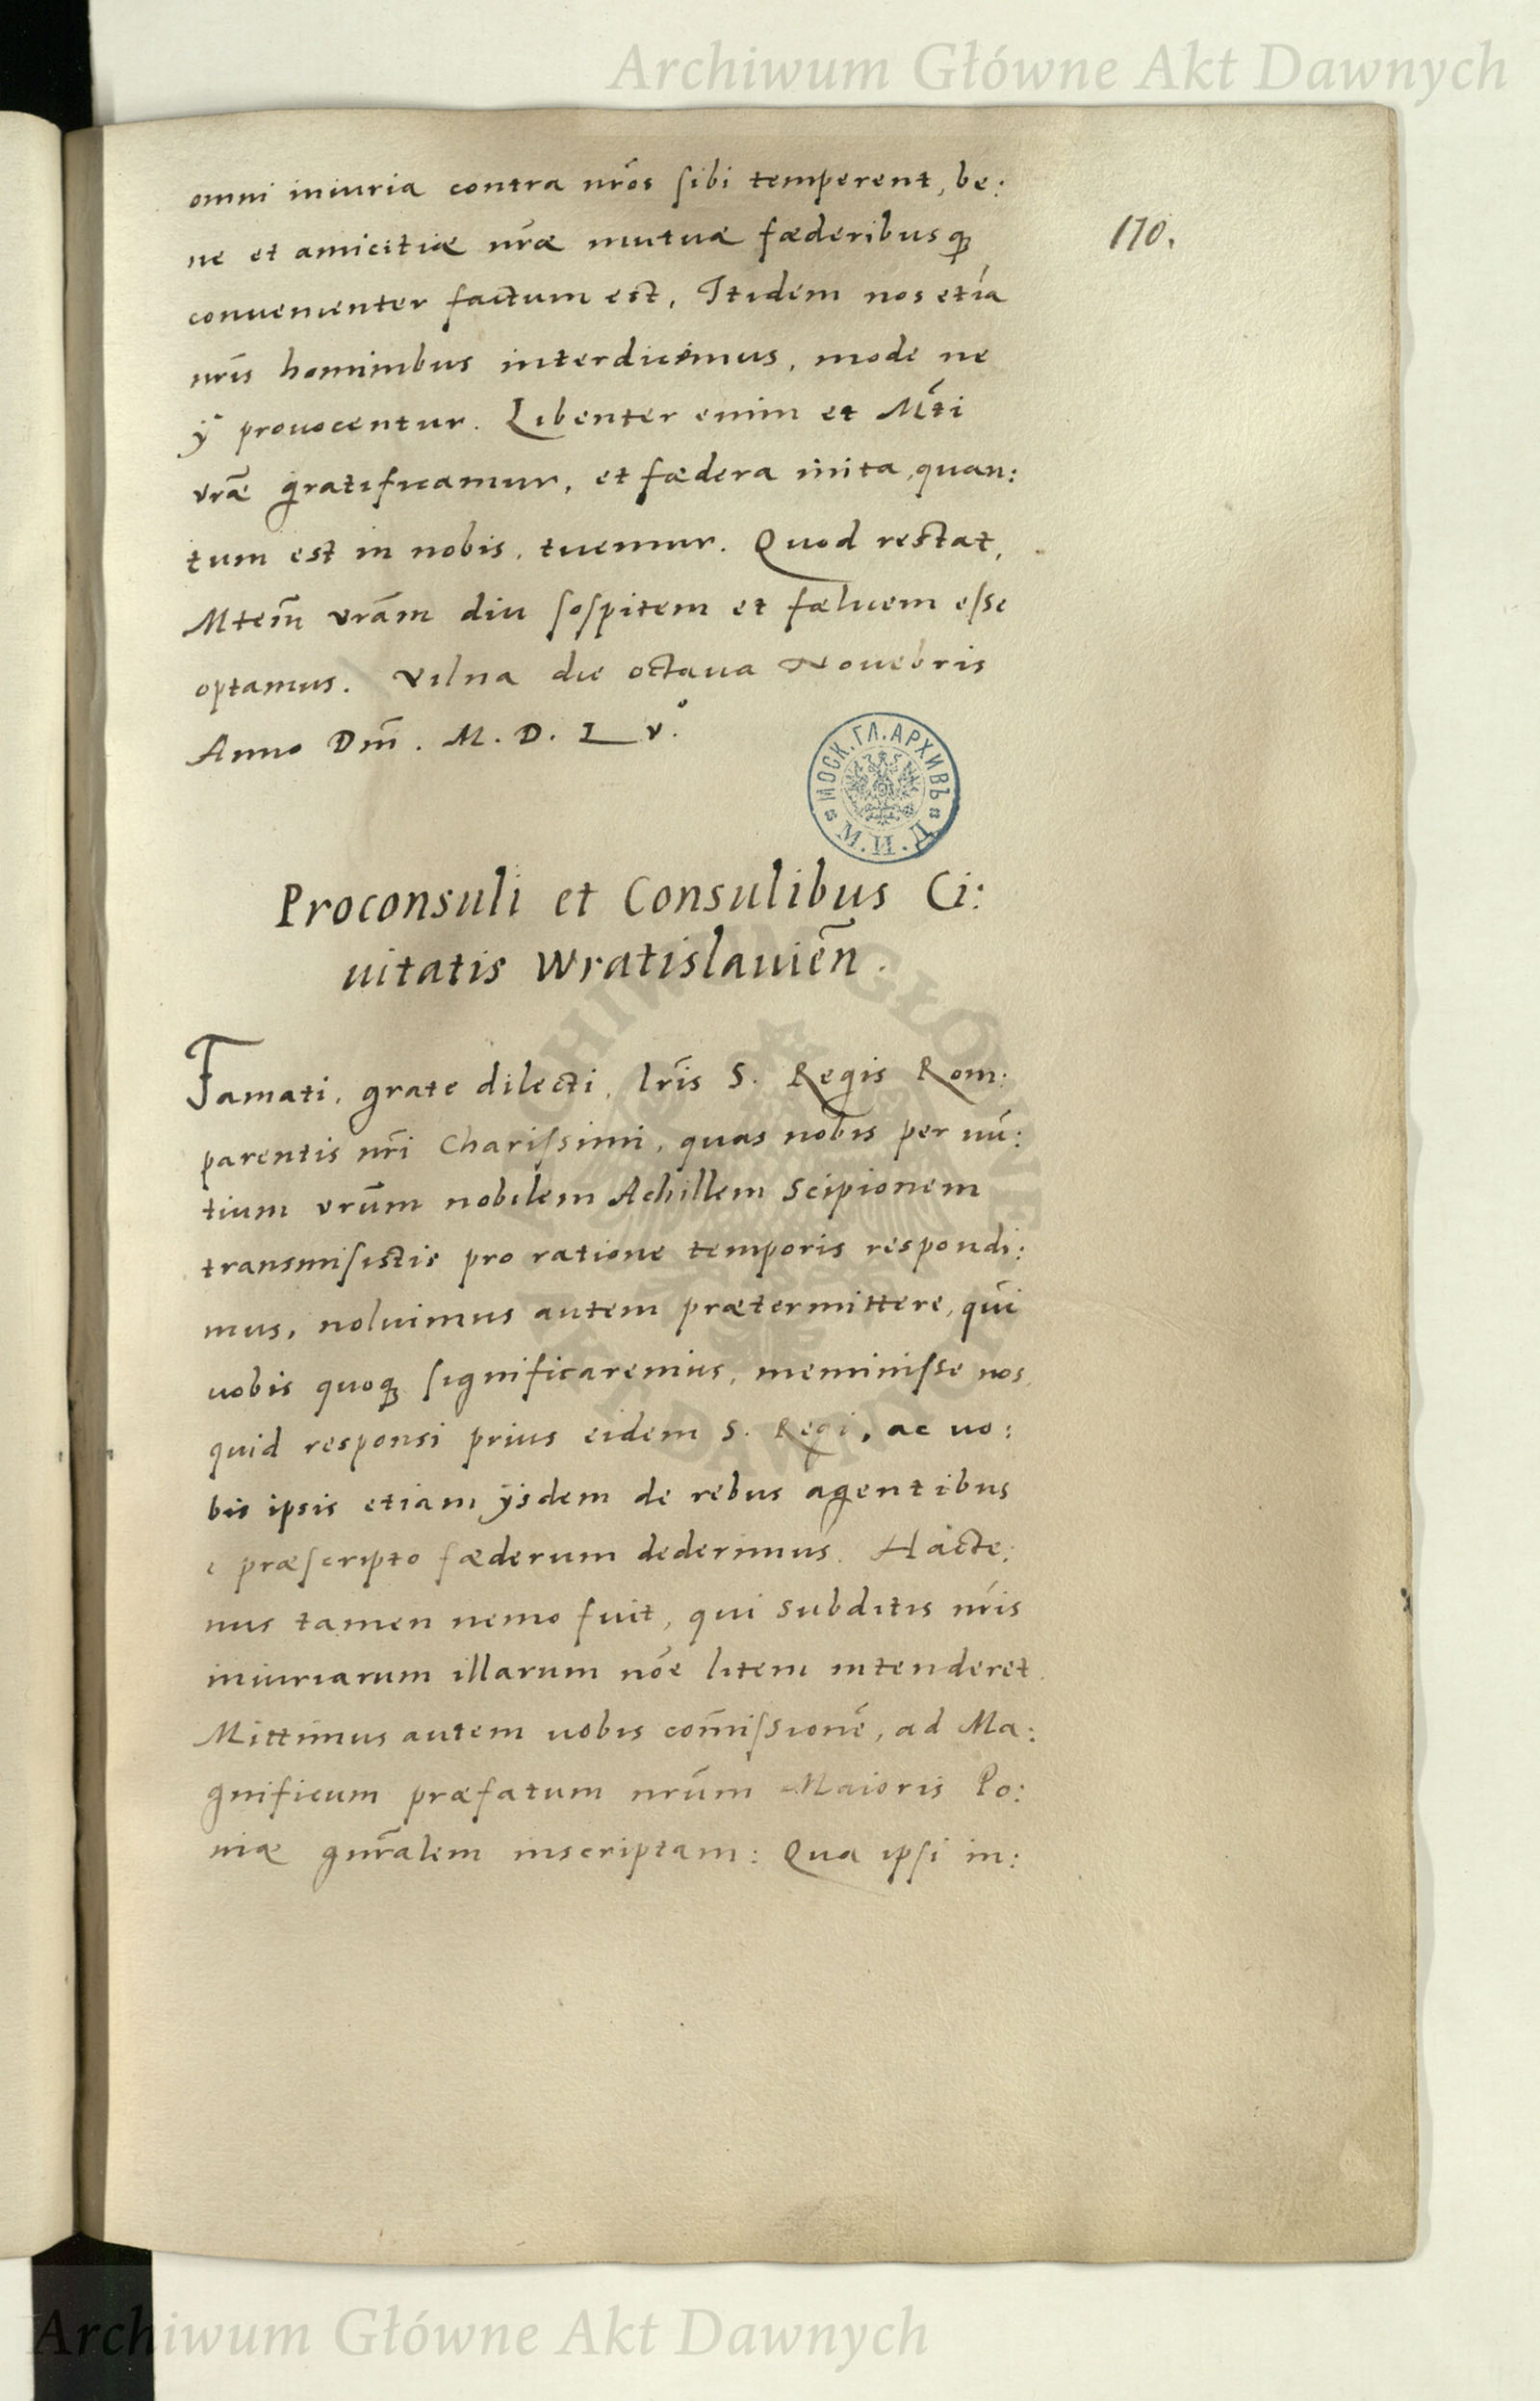 Archiwum Główne Akt Dawnych
omni iniuria contra nŕos sibi temperent, be:
ne et amicitiæ nr̃æ mutuæ fæderibusq
conuenienter factum est, Itidem nos etiã
nr̃is hominibus interdicimus, mode ne
ij prouocentur. Libenter enim et Mt̃i
vr̃æ gratificamur, et fædera inita, quan:
tum est in nobis, tuemur. Quod restat,
Mtem̃ vrãm diu sospitem et fælicem esse
optamus. Vilna die octaua Nouebris
Anno Dm̃. M. D. L v.º
170.
МОСК.ГЛ.АРХИВЪ
М.И.Д.
Proconsuli et Consulibus Ci:
uitatis Wratislauieñ.
Famati, grate dilecti, lr̃is S. Regis Rom:
parentis nr̃i Charissimi, quas nobis per nũ:
tium vrũm nobilem Achillem Scipionem
transmisistis pro ratione temporis respondi:
mus, noluimus autem prætermittere, qui
uobis quoq significaremus, meminisse nos,
quid responsi prius eidem S. Regi, ac uo:
bis ipsis etiam ijsdem de rebus agentibus
e præscripto fæderum dederimus. Hacte:
nus tamen nemo fuit, qui subditis nr̃is
iniuriarum illarum nõe litem intenderet.
Mittimus autem uobis com̃issionẽ, ad Ma:
gnificum præfatum nrũm Maioris Po:
niæ gnr̃alem inscriptam: Qua ipsi in:
ARCHIWUM GŁÓWNE AKT DAWNYCH
Archiwum Główne Akt Dawnych